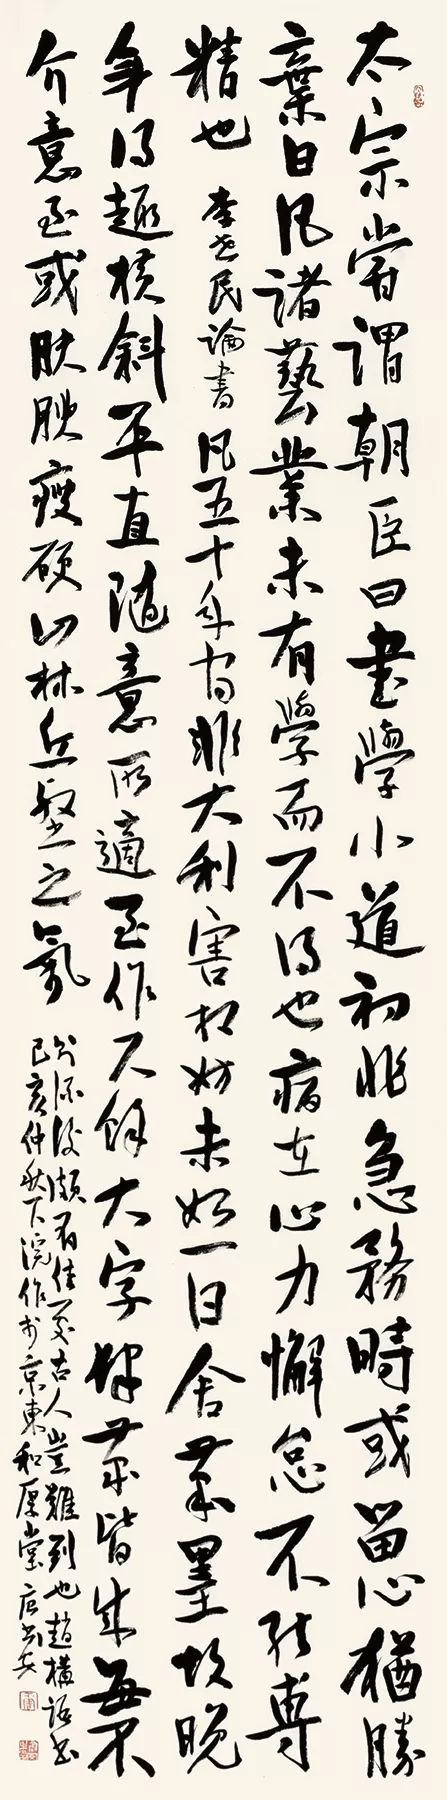 太宗嘗謂朝臣曰書學小道初非急務時或留心猶勝
棄日凡諸藝業未有學而不得也病在心力懈怠不能專
精也 李世民論書 凡五十年間非大利害相妨未始一日舍筆墨故晚
年得趣橫斜平直隨意所適至作尺餘大字肆筆皆成每不
介意至或肤腴瘦硬山林丘壑之氣
則酒後頗有佳處古人豈難到也趙構論書
己亥仲秋下浣作於京東和厚堂